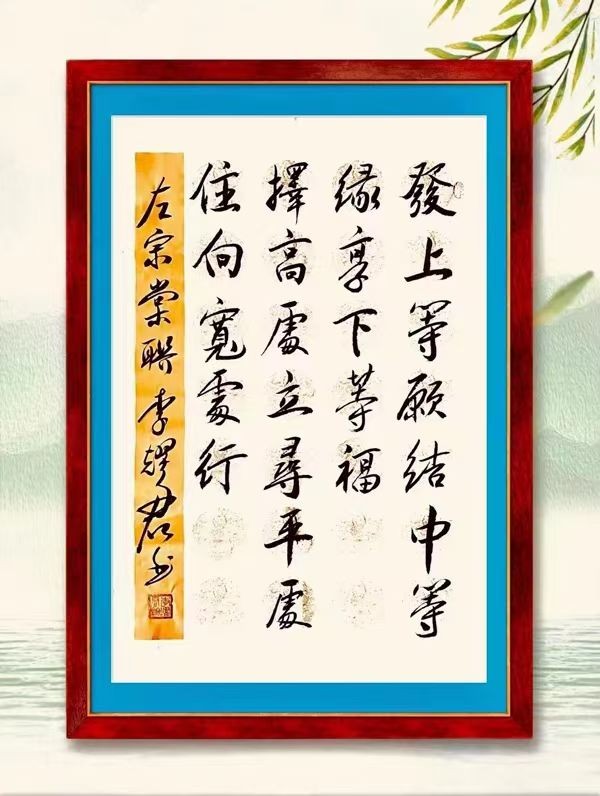 發上等願結中等
緣享下等福
擇高處立尋平處
住向寬處行
左宗棠聯李耀君书